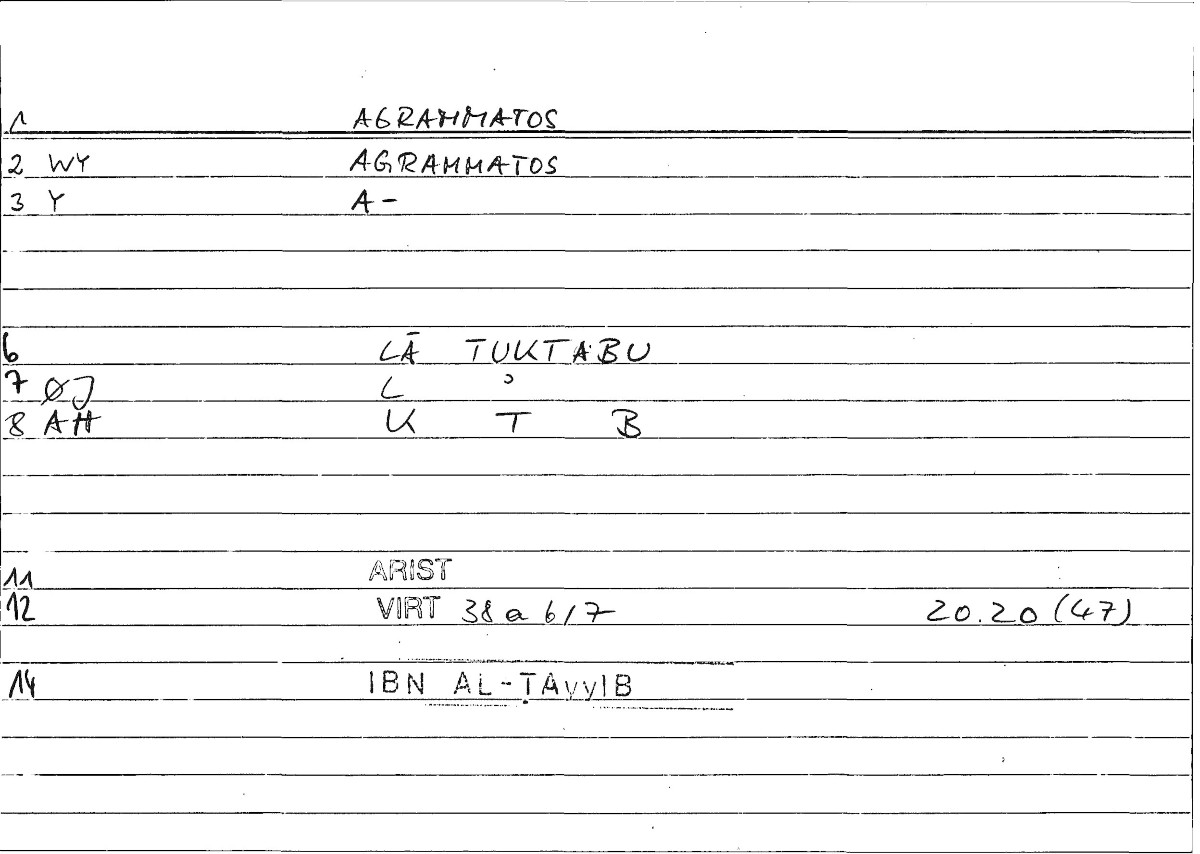 1 AGRAMMATOS
2 WY AGRAMMATOS
3 Y A-
6 LĀ TUKTABU
7 ØJ L ʾ
8 AH K T B
11 ARIST
12 VIRT 38 a 6/7 20.20 (47)
14 IBN AL-ṬAyyIB